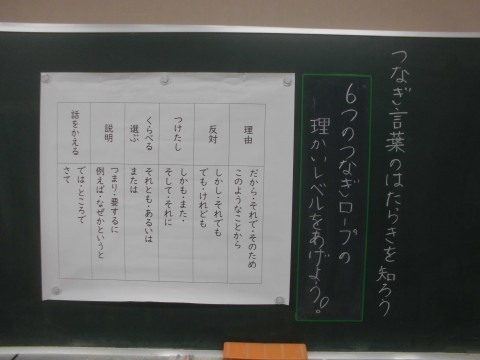 つなぎ言葉のはたらきを知ろう
6つのつなぎロープの
理かいレベルをあげよう!
理由
だから・それで・そのため
このようなことから
反対
しかし・それでも
でも・けれども
つけたし
しかも・また・
そして・それに
くらべる
選ぶ
それとも・あるいは
または
説明
つまり・要するに
例えば・なぜかというと
話をかえる
では・ところで
さて